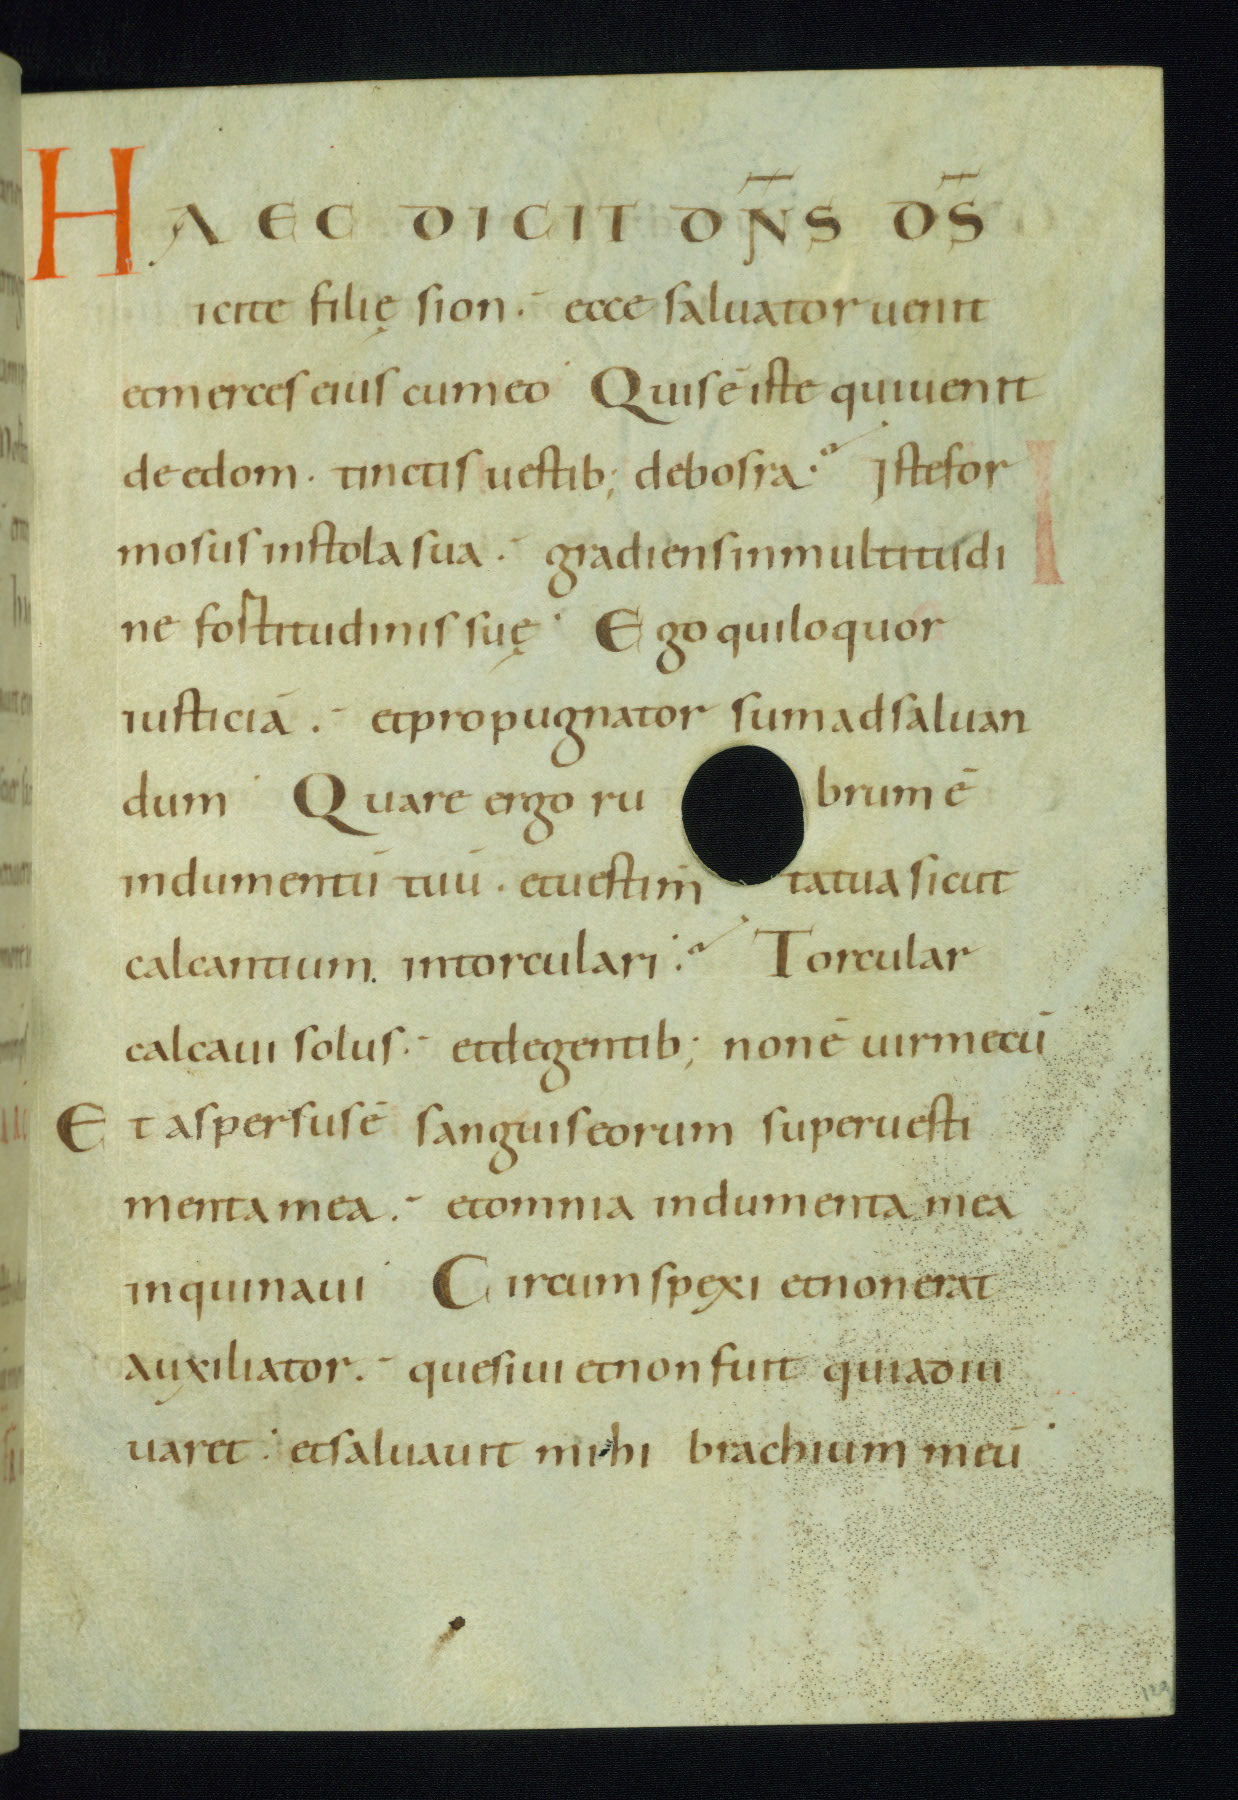 HAEC DICIT DN̄S D̄S
icite filię sion. ecce saluator uenit
et merces eius cum eo Quis ē iste qui uenit
de edom. tinctis uestib; de bosra. Iste for
mosus in stola sua. gradiens in multitudi
ne fortitudinis suę Ego qui loquor
iusticiā. et propugnator sum ad saluan
dum Quare ergo ru brum ē
indumentū tuū. et uestim̄ ta tua sicut
calcantium. in torculari. Torcular
calcaui solus. et de gentib; non ē uir mecū
Et aspersus ē sanguis eorum super uesti
menta mea. et omnia indumenta mea
inquinaui Circumspexi et non erat
auxiliator. quesiui et non fuit qui adiu
uaret et saluauit mihi brachium meū